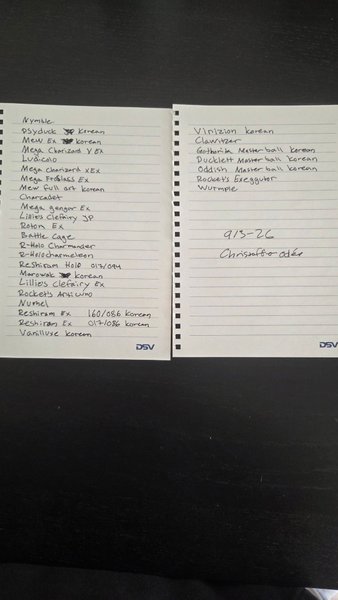 Nymble
Psyduck Korean
Mew Ex Korean
Mega Charizard Y Ex
Ludicolo
Mega Charizard X Ex
Mega Froslass Ex
Mew full art Korean
Charcadet
Mega gengar Ex
Lillie's Clefairy JP
Rotom Ex
Battle Cage
R-Holo Charmander
R-Holo charmeleon
Reshiram Holo 017/094
Marowak Korean
Lillie's Clefairy Ex
Rocket's Articuno
Numel
Reshiram Ex 160/086 Korean
Reshiram Ex 017/086 Korean
Vanilluxe Korean
DSV
Virizion Korean
Clawitzer
Gothorita Masterball Korean
Ducklett Masterball Korean
Oddish Masterball Korean
Rocket's Exeggutor
Wurmple
9/3-26
Christoffer
DSV